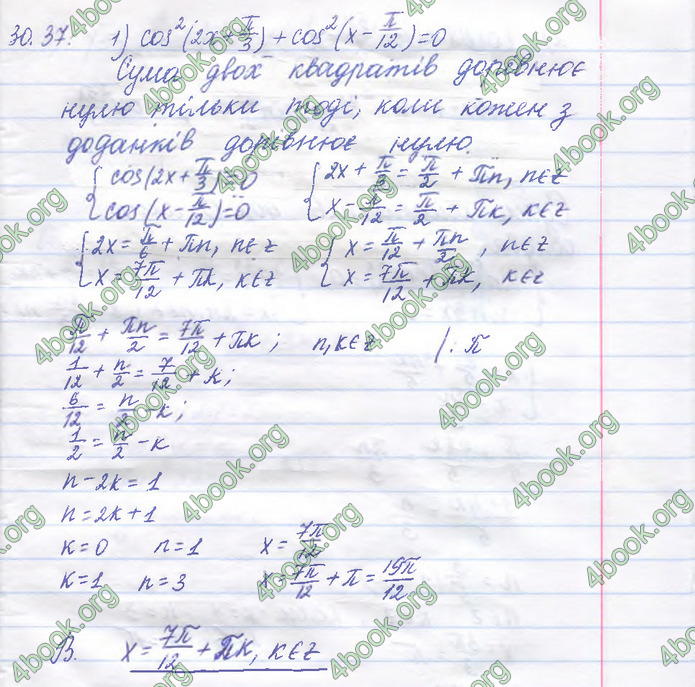 30.37. 1) cos²(2x + π/3) + cos²(x − π/12) = 0
Сума двох квадратів дорівнює
нулю тільки тоді, коли кожен з
доданків дорівнює нулю.
{ cos(2x + π/3) = 0 { 2x + π/3 = π/2 + πn, n∈z
cos(x − π/12) = 0 x − π/12 = π/2 + πk, k∈z
{ 2x = π/6 + πn, n∈z { x = π/12 + πn/2, n∈z
x = 7π/12 + πk, k∈z x = 7π/12 + πk, k∈z
π/12 + πn/2 = 7π/12 + πk; n,k∈z /: π
1/12 + n/2 = 7/12 + k;
6/12 = n/2 − k;
1/2 = n/2 − k
n − 2k = 1
n = 2k + 1
k = 0 n = 1 x = 7π/12
k = 1 n = 3 x = 7π/12 + π = 19π/12
В. x = 7π/12 + πk, k∈z
4book.org